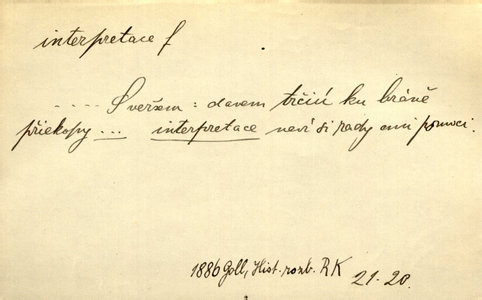 interpretace f
..... S veršem: davem trčiú ku bráně
příekopy ... interpretace neví si rady ani pomoci.
1886 Goll, Hist. rozb. RK 21.20.